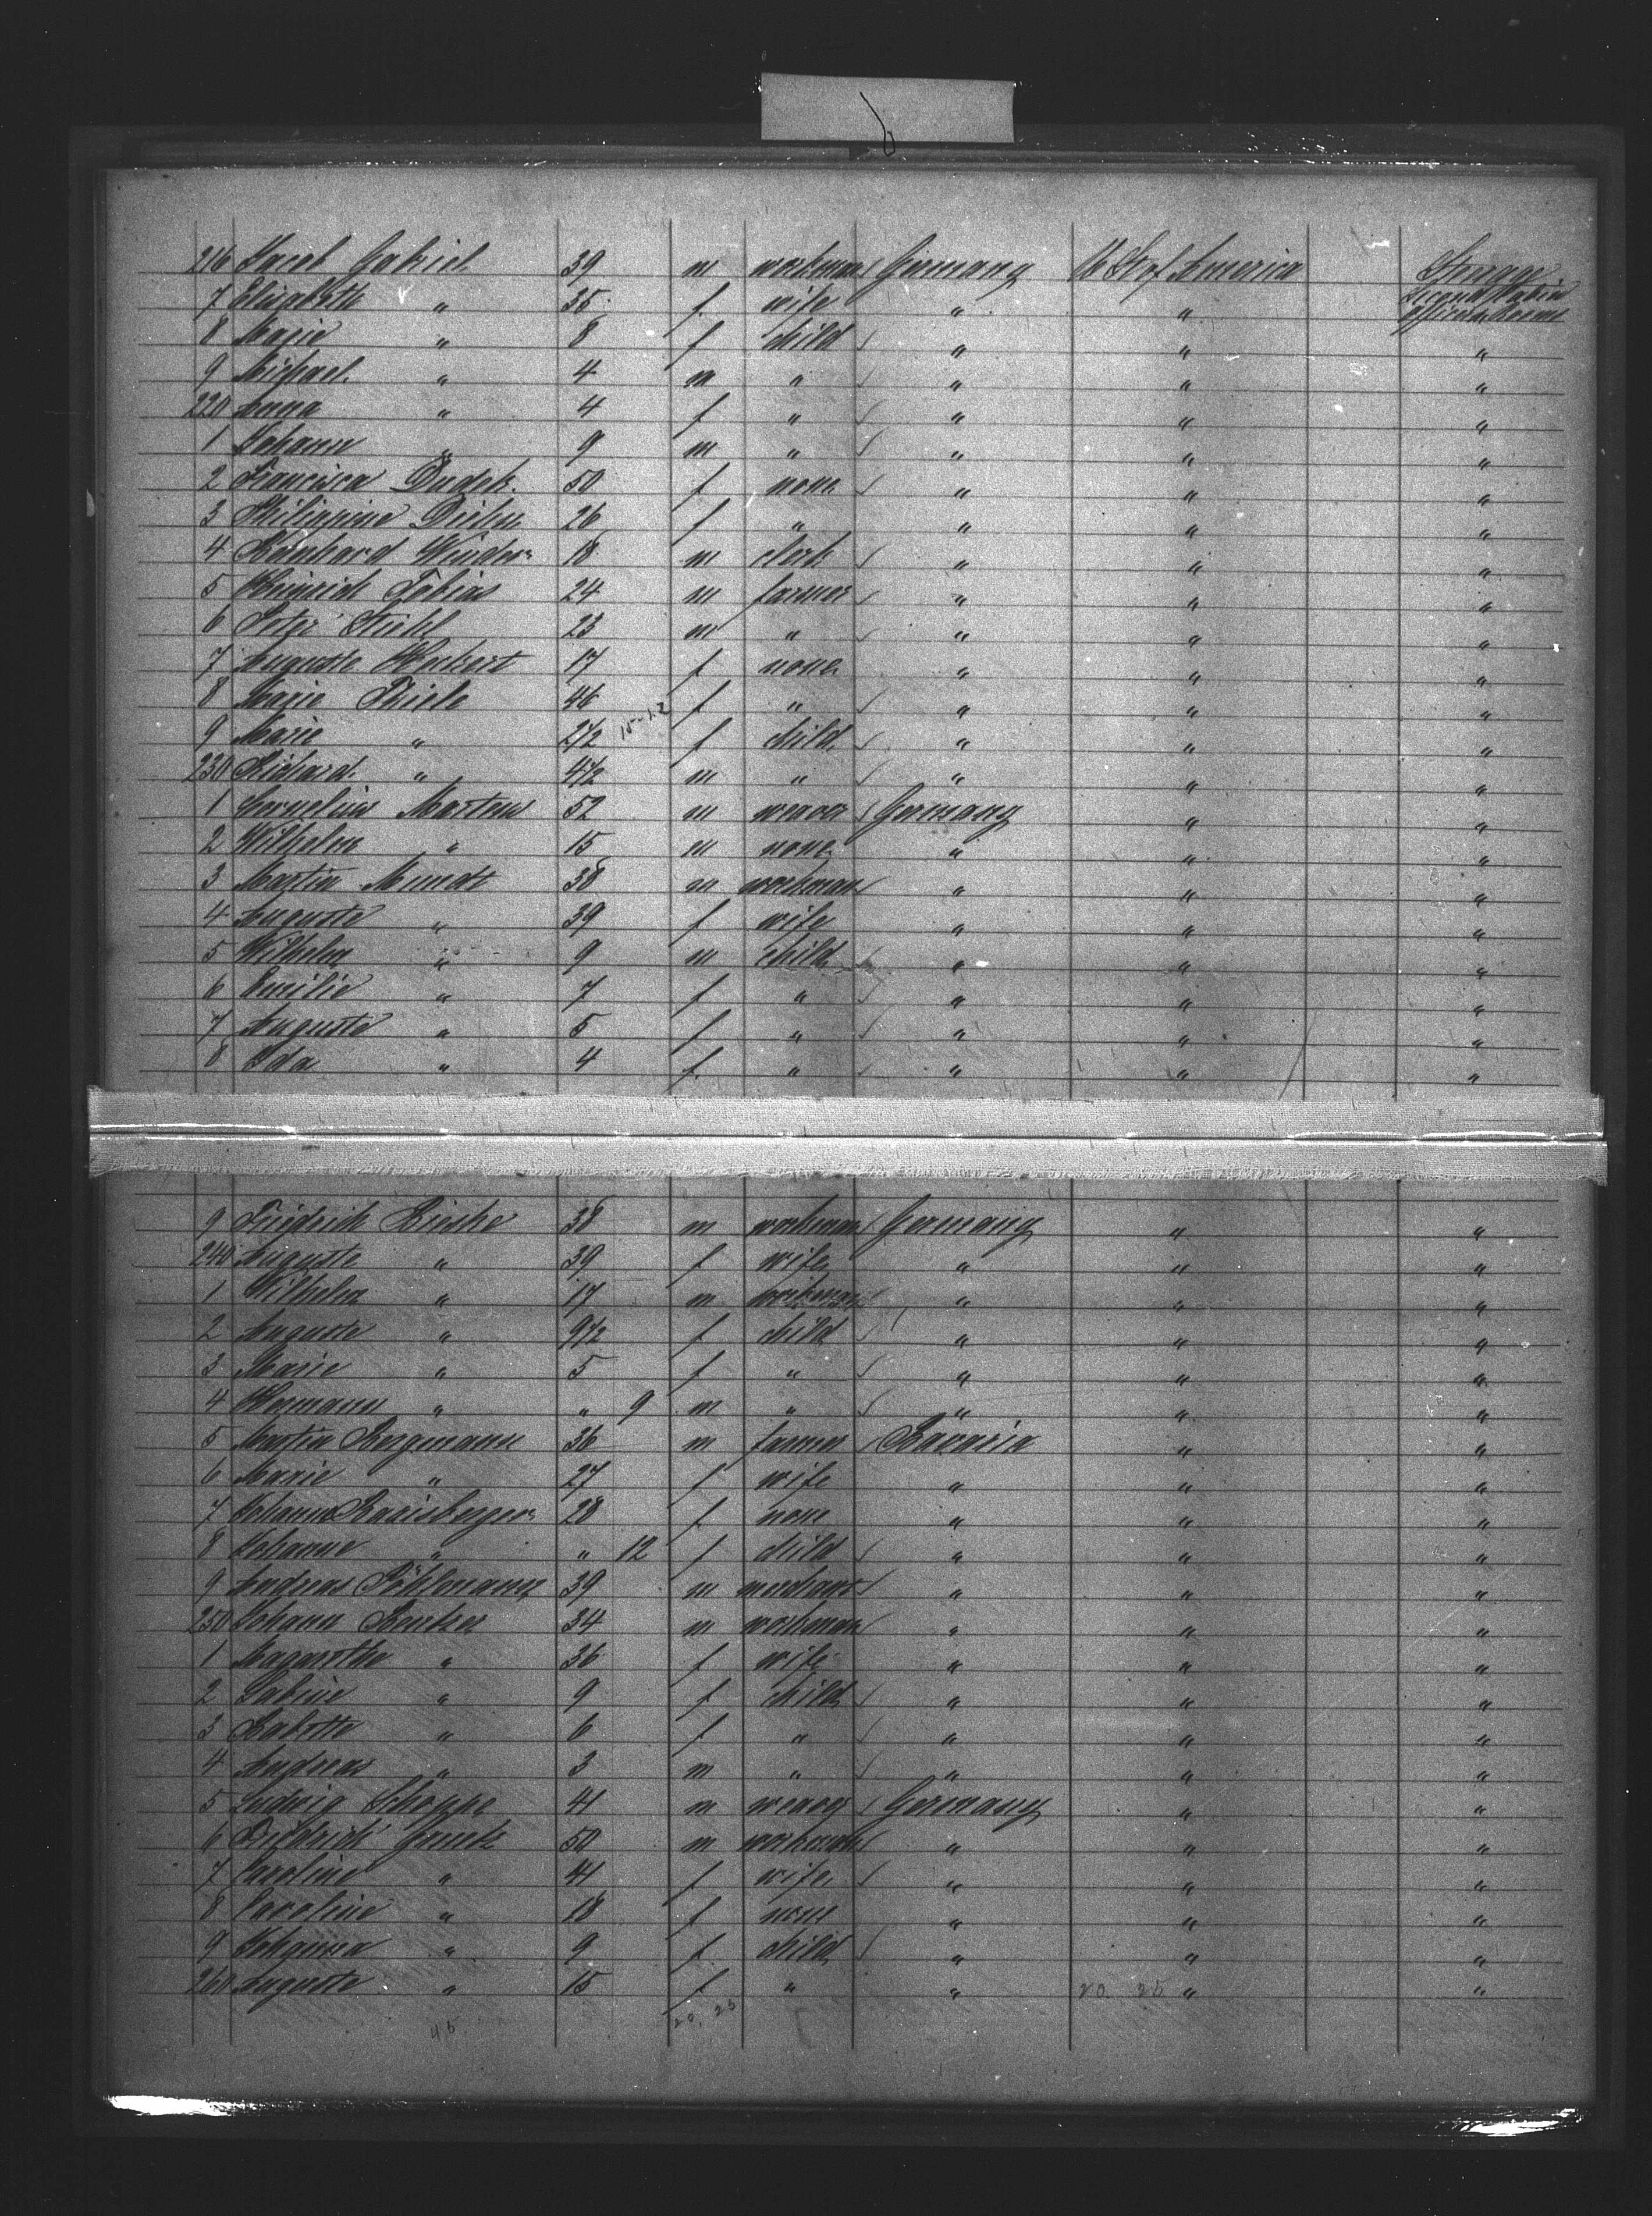 6
216 Jacob Gabriel 39 m workman Germany U St of America Steerage
7 Elisabeth " 35 f wife " " Second Cabin Officers Rooms
8 Marie " 8 f child " " "
9 Michael " 4 m " " " "
220 Anna " 4 f " " " "
1 Johann " 9 m " " " "
2 Francisca Dudek 50 f none " " "
3 Philippine 26 f " " " "
4 18 m clerk " " "
5 Heinrich Tobias 24 m farmer " " "
6 Peter 23 m " " " "
7 Auguste 17 f none " " "
8 Marie Thiele 46 f " " " "
9 Marie " 2 1/2 f child " " "
230 Richard " 4 1/2 m " " " "
1 Cornelius Martens 52 m weaver Germany " "
2 Wilhelm " 15 m none " " "
3 Martin Mundt 38 m workman " " "
4 Auguste " 39 f wife " " "
5 Wilhelm " 9 m child " " "
6 Emilie " 7 f " " " "
7 Auguste " 5 f " " " "
8 Ida " 4 f " " " "
9 Friedrich 38 m workman Germany " "
240 Auguste " 39 f wife " " "
1 Wilhelm " 17 m workman " " "
2 Auguste " 9 1/2 f child " " "
3 Marie " 5 f " " " "
4 Hermann " " 9 m " " " "
5 Martin Bergmann 36 m farmer Bavaria " "
6 Marie " 27 f wife " " "
7 28 f none " " "
8 Johanne " " 12 f child " " "
9 Andreas Pöhlmann 39 m merchant " " "
250 Johann 34 m workman " " "
1 Margarethe " 36 f wife " " "
2 Sabine " 9 f child " " "
3 Babette " 6 f " " " "
4 Andreas " 3 m " " " "
5 Ludwig Schoppe 41 m weaver Germany " "
6 Friedrich 50 m workman " " "
7 Caroline " 41 f wife " " "
8 Caroline " 18 f none " " "
9 Johanna " 9 f child " " "
260 Auguste " 15 f " " 20. 25 " "
45 20. 25